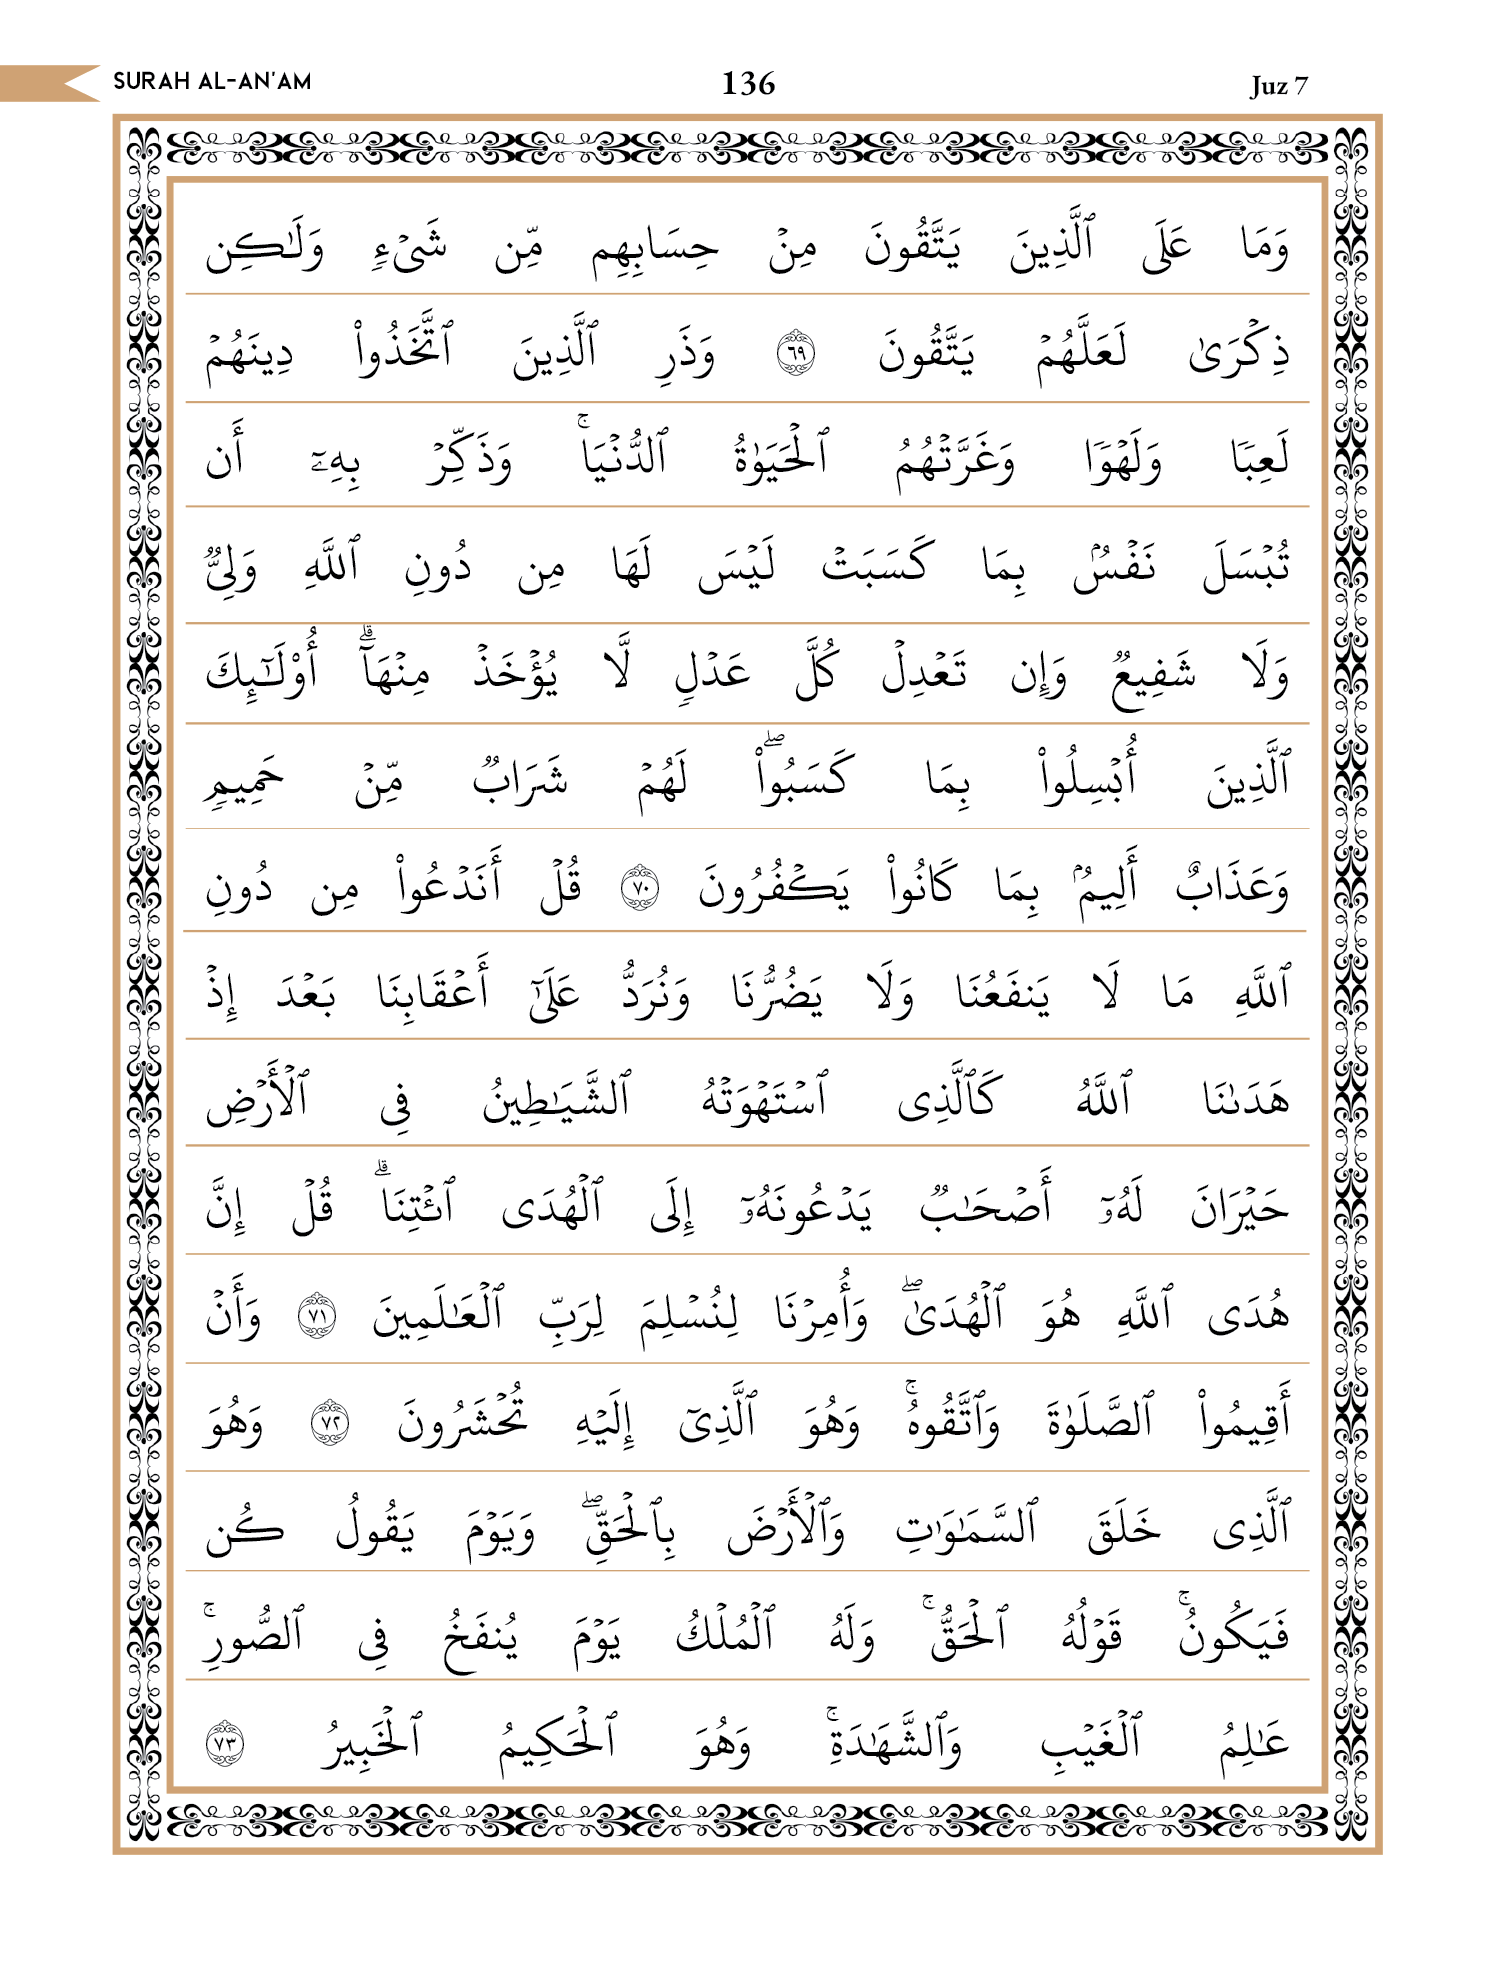 SURAH AL-AN'AM 136 Juz 7
وَمَا عَلَى ٱلَّذِينَ يَتَّقُونَ مِنۡ حِسَابِهِم مِّن شَىۡءٖ وَلَٰكِن
ذِكۡرَىٰ لَعَلَّهُمۡ يَتَّقُونَ ٦٩ وَذَرِ ٱلَّذِينَ ٱتَّخَذُواْ دِينَهُمۡ
لَعِبٗا وَلَهۡوٗا وَغَرَّتۡهُمُ ٱلۡحَيَوٰةُ ٱلدُّنۡيَاۚ وَذَكِّرۡ بِهِۦٓ أَن
تُبۡسَلَ نَفۡسُۢ بِمَا كَسَبَتۡ لَيۡسَ لَهَا مِن دُونِ ٱللَّهِ وَلِىّٞ
وَلَا شَفِيعٞ وَإِن تَعۡدِلۡ كُلَّ عَدۡلٖ لَّا يُؤۡخَذۡ مِنۡهَآۗ أُوْلَٰٓئِكَ
ٱلَّذِينَ أُبۡسِلُواْ بِمَا كَسَبُواْۖ لَهُمۡ شَرَابٞ مِّنۡ حَمِيمٖ
وَعَذَابٌ أَلِيمُۢ بِمَا كَانُواْ يَكۡفُرُونَ ٧٠ قُلۡ أَنَدۡعُواْ مِن دُونِ
ٱللَّهِ مَا لَا يَنفَعُنَا وَلَا يَضُرُّنَا وَنُرَدُّ عَلَىٰٓ أَعۡقَابِنَا بَعۡدَ إِذۡ
هَدَىٰنَا ٱللَّهُ كَٱلَّذِى ٱسۡتَهۡوَتۡهُ ٱلشَّيَٰطِينُ فِى ٱلۡأَرۡضِ
حَيۡرَانَ لَهُۥٓ أَصۡحَٰبٞ يَدۡعُونَهُۥٓ إِلَى ٱلۡهُدَى ٱئۡتِنَاۗ قُلۡ إِنَّ
هُدَى ٱللَّهِ هُوَ ٱلۡهُدَىٰۖ وَأُمِرۡنَا لِنُسۡلِمَ لِرَبِّ ٱلۡعَٰلَمِينَ ٧١ وَأَنۡ
أَقِيمُواْ ٱلصَّلَوٰةَ وَٱتَّقُوهُۚ وَهُوَ ٱلَّذِىٓ إِلَيۡهِ تُحۡشَرُونَ ٧٢ وَهُوَ
ٱلَّذِى خَلَقَ ٱلسَّمَٰوَٰتِ وَٱلۡأَرۡضَ بِٱلۡحَقِّۖ وَيَوۡمَ يَقُولُ كُن
فَيَكُونُۚ قَوۡلُهُ ٱلۡحَقُّۚ وَلَهُ ٱلۡمُلۡكُ يَوۡمَ يُنفَخُ فِى ٱلصُّورِۚ
عَٰلِمُ ٱلۡغَيۡبِ وَٱلشَّهَٰدَةِۚ وَهُوَ ٱلۡحَكِيمُ ٱلۡخَبِيرُ ٧٣